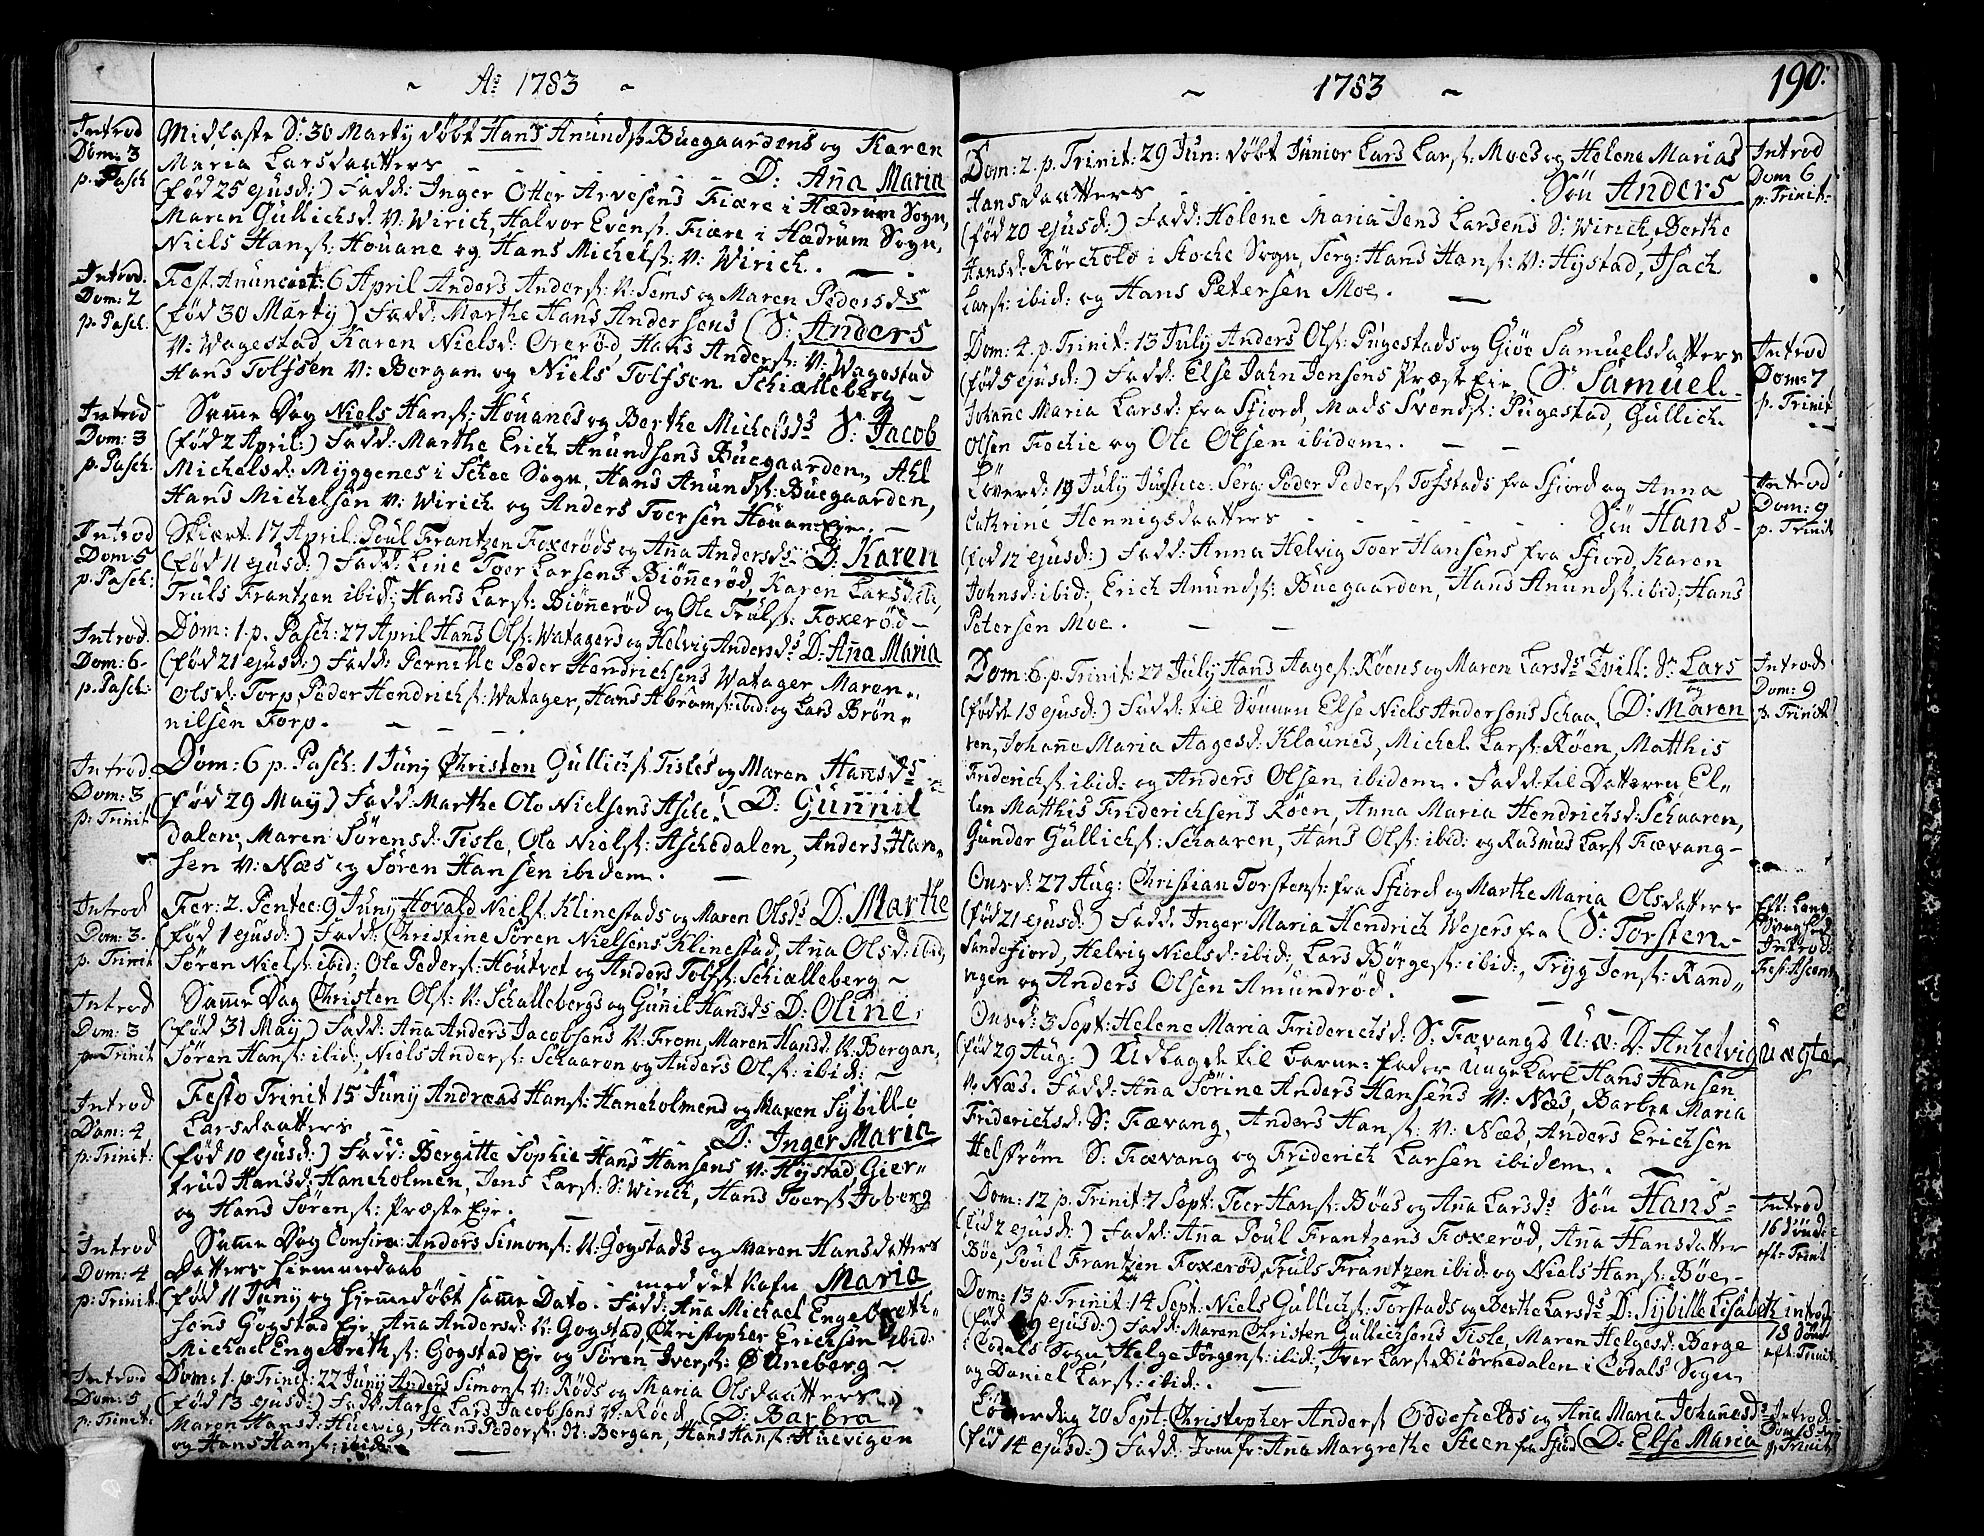 Ao 1783
Introd
Dom: 3
p. Pasch
Midfaste S: 30 Marty døbt Hans Anundss: Buegaardens og Karen
Maria Larsdaatters - - - D: Ana Maria
(fød 25 ejusd:) Fadd: Inger Otter Arvesens Fiære i Hædrum Sogn,
Maren Gullichsd: V: Wirich, Halvor Evens: Fiære i Hædrum Sogn,
Niels Hans: Houane og Hans Michels: V: Wirich.
Introd.
Dom: 2
p. Pasch:
Fest. Anunciat: 6 April Anders Anders: N: Sems og Maren Pedersds
(fød 30 Marty) Fadd: Marthe Hans Andersens (S: Anders
V: Wagestad Karen Nielsd: Overød, Hans Anders: V: Wagestad
Hans Tolfsen V: Bergan og Niels Tolfsen Schiælleberg -
Introd
Dom: 3
p. Pasch.
Same Dag Niels Hans: Houanes og Berthe Michelsds S: Jacob
(fød 2 April:) Fadd: Marthe Erich Anundsens Buegaarden, Ahl
Michelsd: Myggenes i Schee Sogn, Hans Anunds: Buegaarden,
Hans Michelsen V: Wirich og Anders Toersen Houan Eje. -
Introd
Dom: 5
p. Pasch:
Skiært. 17 April. Poul Frantzen Foxerøds og Ana Andersds D: Karen
(fød 11 ejusd:) Fadd: Line Toer Larsens Biønnerød, Karen Larsd: ibid,
Truls Frantzen ibid; Hans Lars: Biønnerød og Ole Truls: Foxerød -
Introd.
Dom: 6-
p. Pasch:
Dom: 1. p. Pasch: 27 April Hans Ols: Watagers og Helvig Andersds D: Ana Maria
(fød 21 ejusd:) Fadd: Pernille Peder Hendrichsens Watager Maren
Olsd: Torp, Peder Hendrichs: Watager, Hans Abrams: ibid: og Lars Brøn-
nilsen Torp.
Introd.
Dom: 3
p. Trinit
Dom: 6 p. Pasch: 1 Juny Christen Gullichs: Tisles og Maren Hansds
(fød 29 May) Fadd: Marthe Ole Nielsens Asche- (D: Gunnil
dalen, Maren Sørensd: Tisle, Ole Niels: Aschedalen, Anders Han-
sen V: Næs og Søren Hansen ibidem.
Introd
Dom: 3-
p. Trinit
Fer: 2. Pentec: 9 Juny Hovald Niels: Klinestads og Maren Olsds D: Marthe
(fød 1 ejusd:) Fadd: Christine Søren Nielsens Klinestad, Ana Olsd: ibid,
Søren Niels: ibid; Ole Peders: Houtvet og Anders Tolfs: Schiælleberg -
Introd
Dom: 3
p. Trinit
Same Dag Christen Ols: N: Schallebergs og Gunnil Hansds D: Oline,
(fød 31 May) Fadd: Ana Anders Jacobsens N: From, Maren Hansd: N: Bergan,
Søren Hans: ibid; Niels Anders: Schaaron og Anders Ols: ibid: -
Introd
Dom: 4
p: Trinit:
Festo Trinit 15 Juny Andreas Hans: Haneholmens og Maren Sybille
Larsdaatters - - D: Inger Maria
(fød 10 ejusd:) Fadd: Bergitte Sophie Hans Hansens V: Hystad, Gier-
trud Hansd: Haneholmen, Jens Lars: S: Wirich, Hans Toers: Joberg
og Hans Sørens: Præste Eje.
Introd
Dom: 4
p: Trinit
Same Dag Anders Simons: N: Gogstads og Maren Hansdatters
Datters hiemmedaab med det Nafn Maria
(fød 11 Juny og hjemedøbt same Dato. Fadd: Ana Michael Engelbreth-
sens Gogstad Eje, Ana Andersd: N: Gogstad, Christopher Erichsen ibid:
Michael Engelbreths: Gogstad Eje og Søren Ivers: Øuneberg -
Introd
Dom: 5
p: Trinit:
Dom: 1. p. Trinit: 22 Juny Anders Simons: V: Røds og Maria Olsdaatters
(fød 13 ejusd:) Fadd: Aarse Lars Jacobsens V: Røed (D: Barbra
Maren Hansd: Huevig, Hans Peders: N: Bergan, Hans Hans: Huevigen
og Hans Hans: ibid:
1783
190:
Dom: 2. p. Trinit: 29 Jun: døbt Junior Lars Lars: Moes og Helene Marias
Hansdaatters - - - Søn Anders
(fød 20 ejusd:) Fadd: Helene Maria Jens Larsens S: Wirich, Berthe
Hansd: Rørchold i Stoche Sogn, Serg: Hans Hans: V: Hystad, Isach
Lars: ibid: og Hans Petersen Moe.
Introd
Dom 6
p. Trinit:
Dom: 4. p. Trinit: 13 July Anders Ols: Pugestads og Giøe Samuelsdatters
(fød 5 ejusd:) Fadd: Else Jahn Jensens Præste Eje, (S: Samuel -
Johanne Maria Larsd: fra Sfiord, Mads Svends: Pugestad, Gullich
Olsen Fochie og Ole Olsen ibidem.
Introd
Dom: 7
p. Trinit
Løverd: 19 July Justice: Serg: Peder Peders: Tofstads fra Sfiord og Anna
Cathrine Hennigsdaatters - - - Søn Hans -
(fød 12 ejusd:) Fadd: Anna Helvig Toer Hansens fra Sfiord, Karen
Johnsd: ibid:, Erich Anunds: Buegaarden, Hans Anunds: ibid; Hans
Petersen Moe.
Introd
Dom: 9
p. Trinit
Dom: 6. p. Trinit: 27 July Hans Aages: Røens og Maren Larsds Tvill: Sn Lars
og
(født 18 ejusd:) Fadd: til Sønnen Else Niels Andersens Schaa- (D: Maren
ren, Johane Maria Aagesd: Klaunes, Michel Lars: Røen, Matthis
Friderichs: ibid: og Anders Olsen ibidem. Fadd: til Datteren El-
len Matthis Friderichsens Røen, Anna Maria Hendrichsd: Schaaren,
Gunder Gullichs: Schaaren, Hans Ols: ibid: og Rasmus Lars: Fævang -
Introd
Dom: 9
p. Trinit
Onsd: 27 Aug: Christian Torstens: fra Sfiord og Marthe Maria Olsdatters
(fød 21 ejusd:) Fadd: Inger Maria Hendrich Wejers fra (S: Torsten -
Sandefiord, Helvig Nielsd: ibid:, Lars Børges: ibid:, Tryg Jens: Rand-
vigen og Anders Olsen Amundrød.
Eft: Lang
Svaghed
Introd:
Fest: Ascens
Onsd: 3 Sept: Helene Maria Friderichsd: S: Fævangs U: æ: D: Anhelvig
(fød 29 Aug:) Udlagde til Barne-fader Unge Karl Hans Hansen
V: Næs. Fadd: Ana Sørine Anders Hansens V: Næs, Barbra Maria
Friderichsd: S: Fævang, Anders Hans: V: Næs, Anders Erichsen
Helstrøm S: Fævang og Friderich Larsen ibidem.
Uægte
Dom: 12 p. Trinit: 7 Sept: Toer Hans: Bøes og Ana Larsds Søn Hans -
(fød 2 ejusd:) Fadd: Ana Poul Frantzens Foxerød, Ana Hansdatter
Bøe, Poul Frantzen Foxerød, Truls Frantzen ibid: og Niels Hans: Bøe -
Introd
16 Sønd:
eft: Trinit
Dom: 13 p. Trinit: 14 Sept: Niels Gullichs: Torstads og Berthe Larsds D: Sybille Lisabeth
(fød 9 ejusd:) Fadd: Maren Christen Gullichsens Tisle, Maren Helgesd: Berge
i Codals Sogn, Helge Jørgens: ibid:, Iver Lars: Biørnedalen i Codals Sogn
og Daniel Lars: ibid:.
introd:
18 Sønd
eft: Trinit
Løverdag 20 Sept: Christopher Anders: Oddefields og Ana Maria Johanesds
(fød 14 ejusd:) Fadd: Jomfr: Ana Margrethe Steen fra Sfiord (D: Else Maria
Introd:
Dom 18
p: Trinit